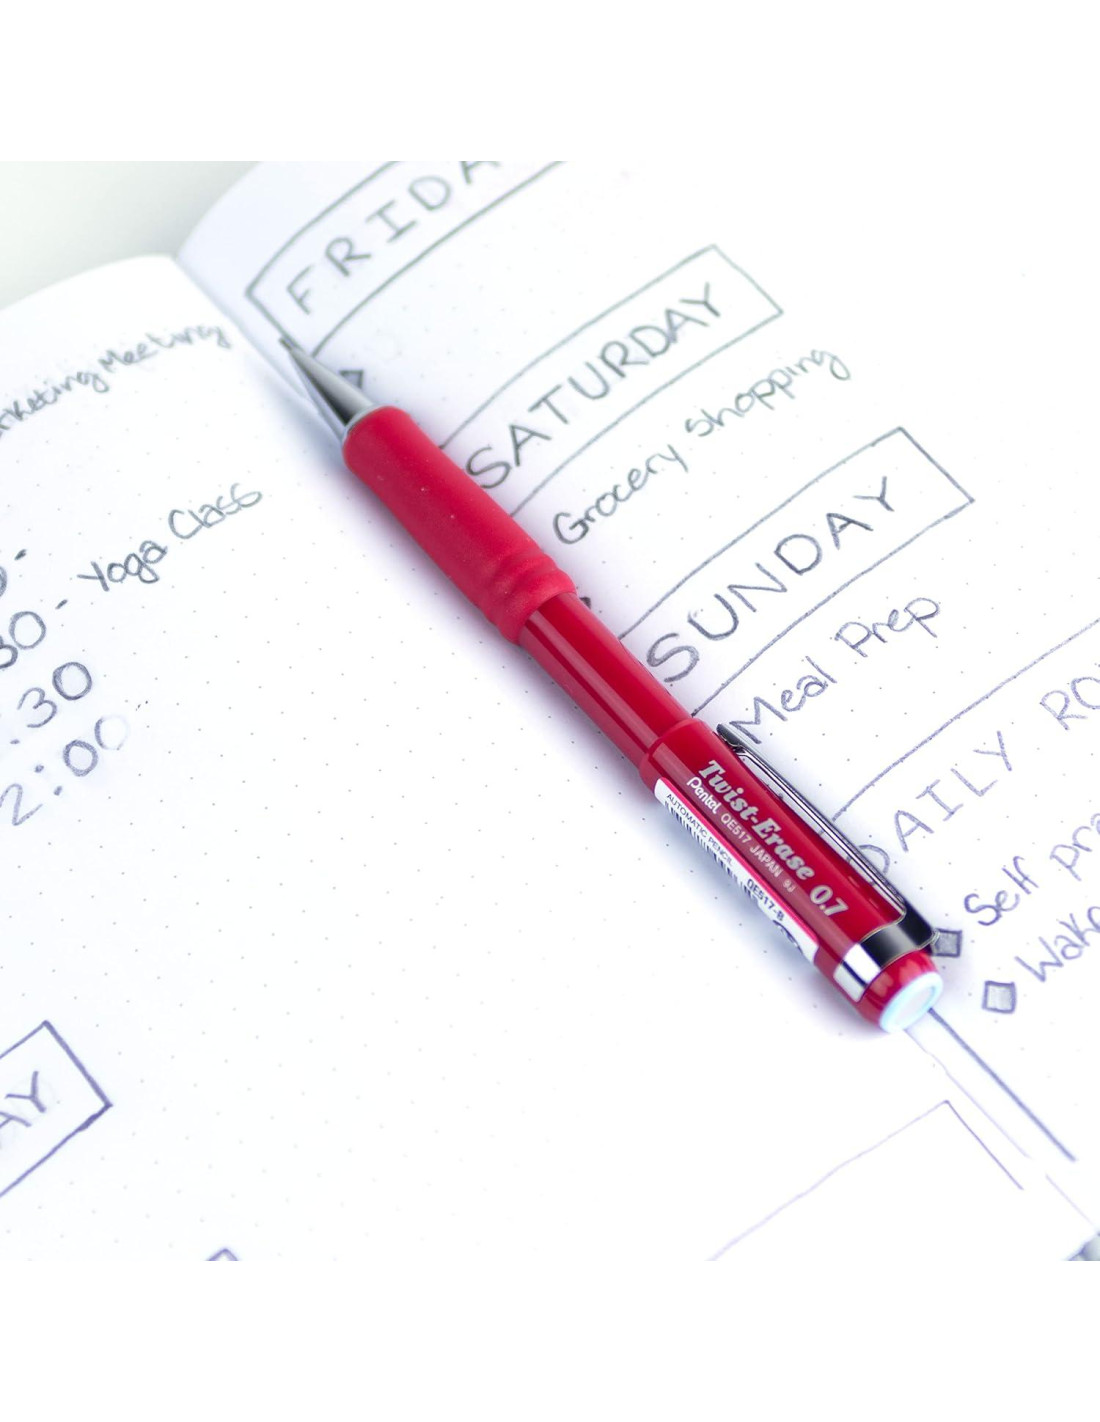 Meeting
- Yoga Class
30
.30
2:00
AY
FRIDA
SATURDAY
Grocery Shopping
SUNDAY
Meal Prep
DAILY RO
Self pra
Wake
Twist-Erase 0.7
Pentel QE517 JAPAN 9J
AUTOMATIC PENCIL QE517-B